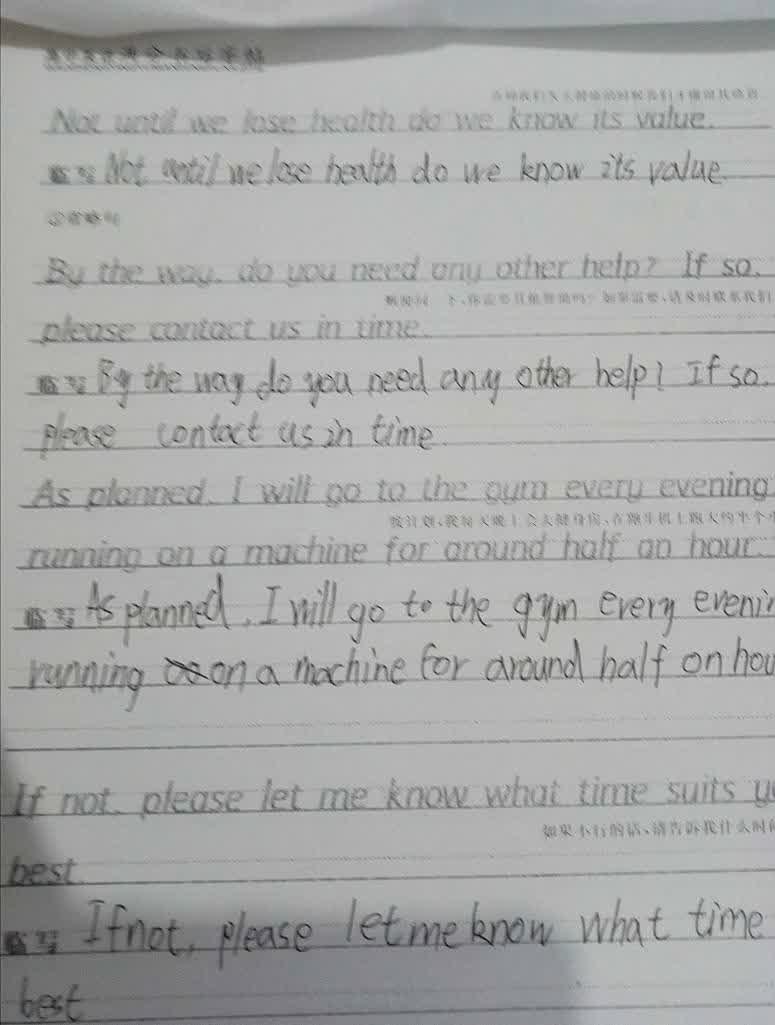 满分
Not until we lose health do we know its value.
临写 Not until we lose health do we know its value.
②省略句
By the way, do you need any other help? If so,
顺便问一下,你需要其他帮助吗?如果需要,请及时联系我们
please contact us in time.
临写 By the way do you need any other help? If so.
please contact us in time
As planned, I will go to the gym every evening
按计划,我每天晚上会去健身房,在跑步机上跑大约半个
running on a machine for around half an hour.
临写 As planned, I will go to the gym every evenin
running on a machine for around half on hou
If not, please let me know what time suits y
如果不行的话,请告诉我什么时间
best.
临写 If not, please let me know what time
best